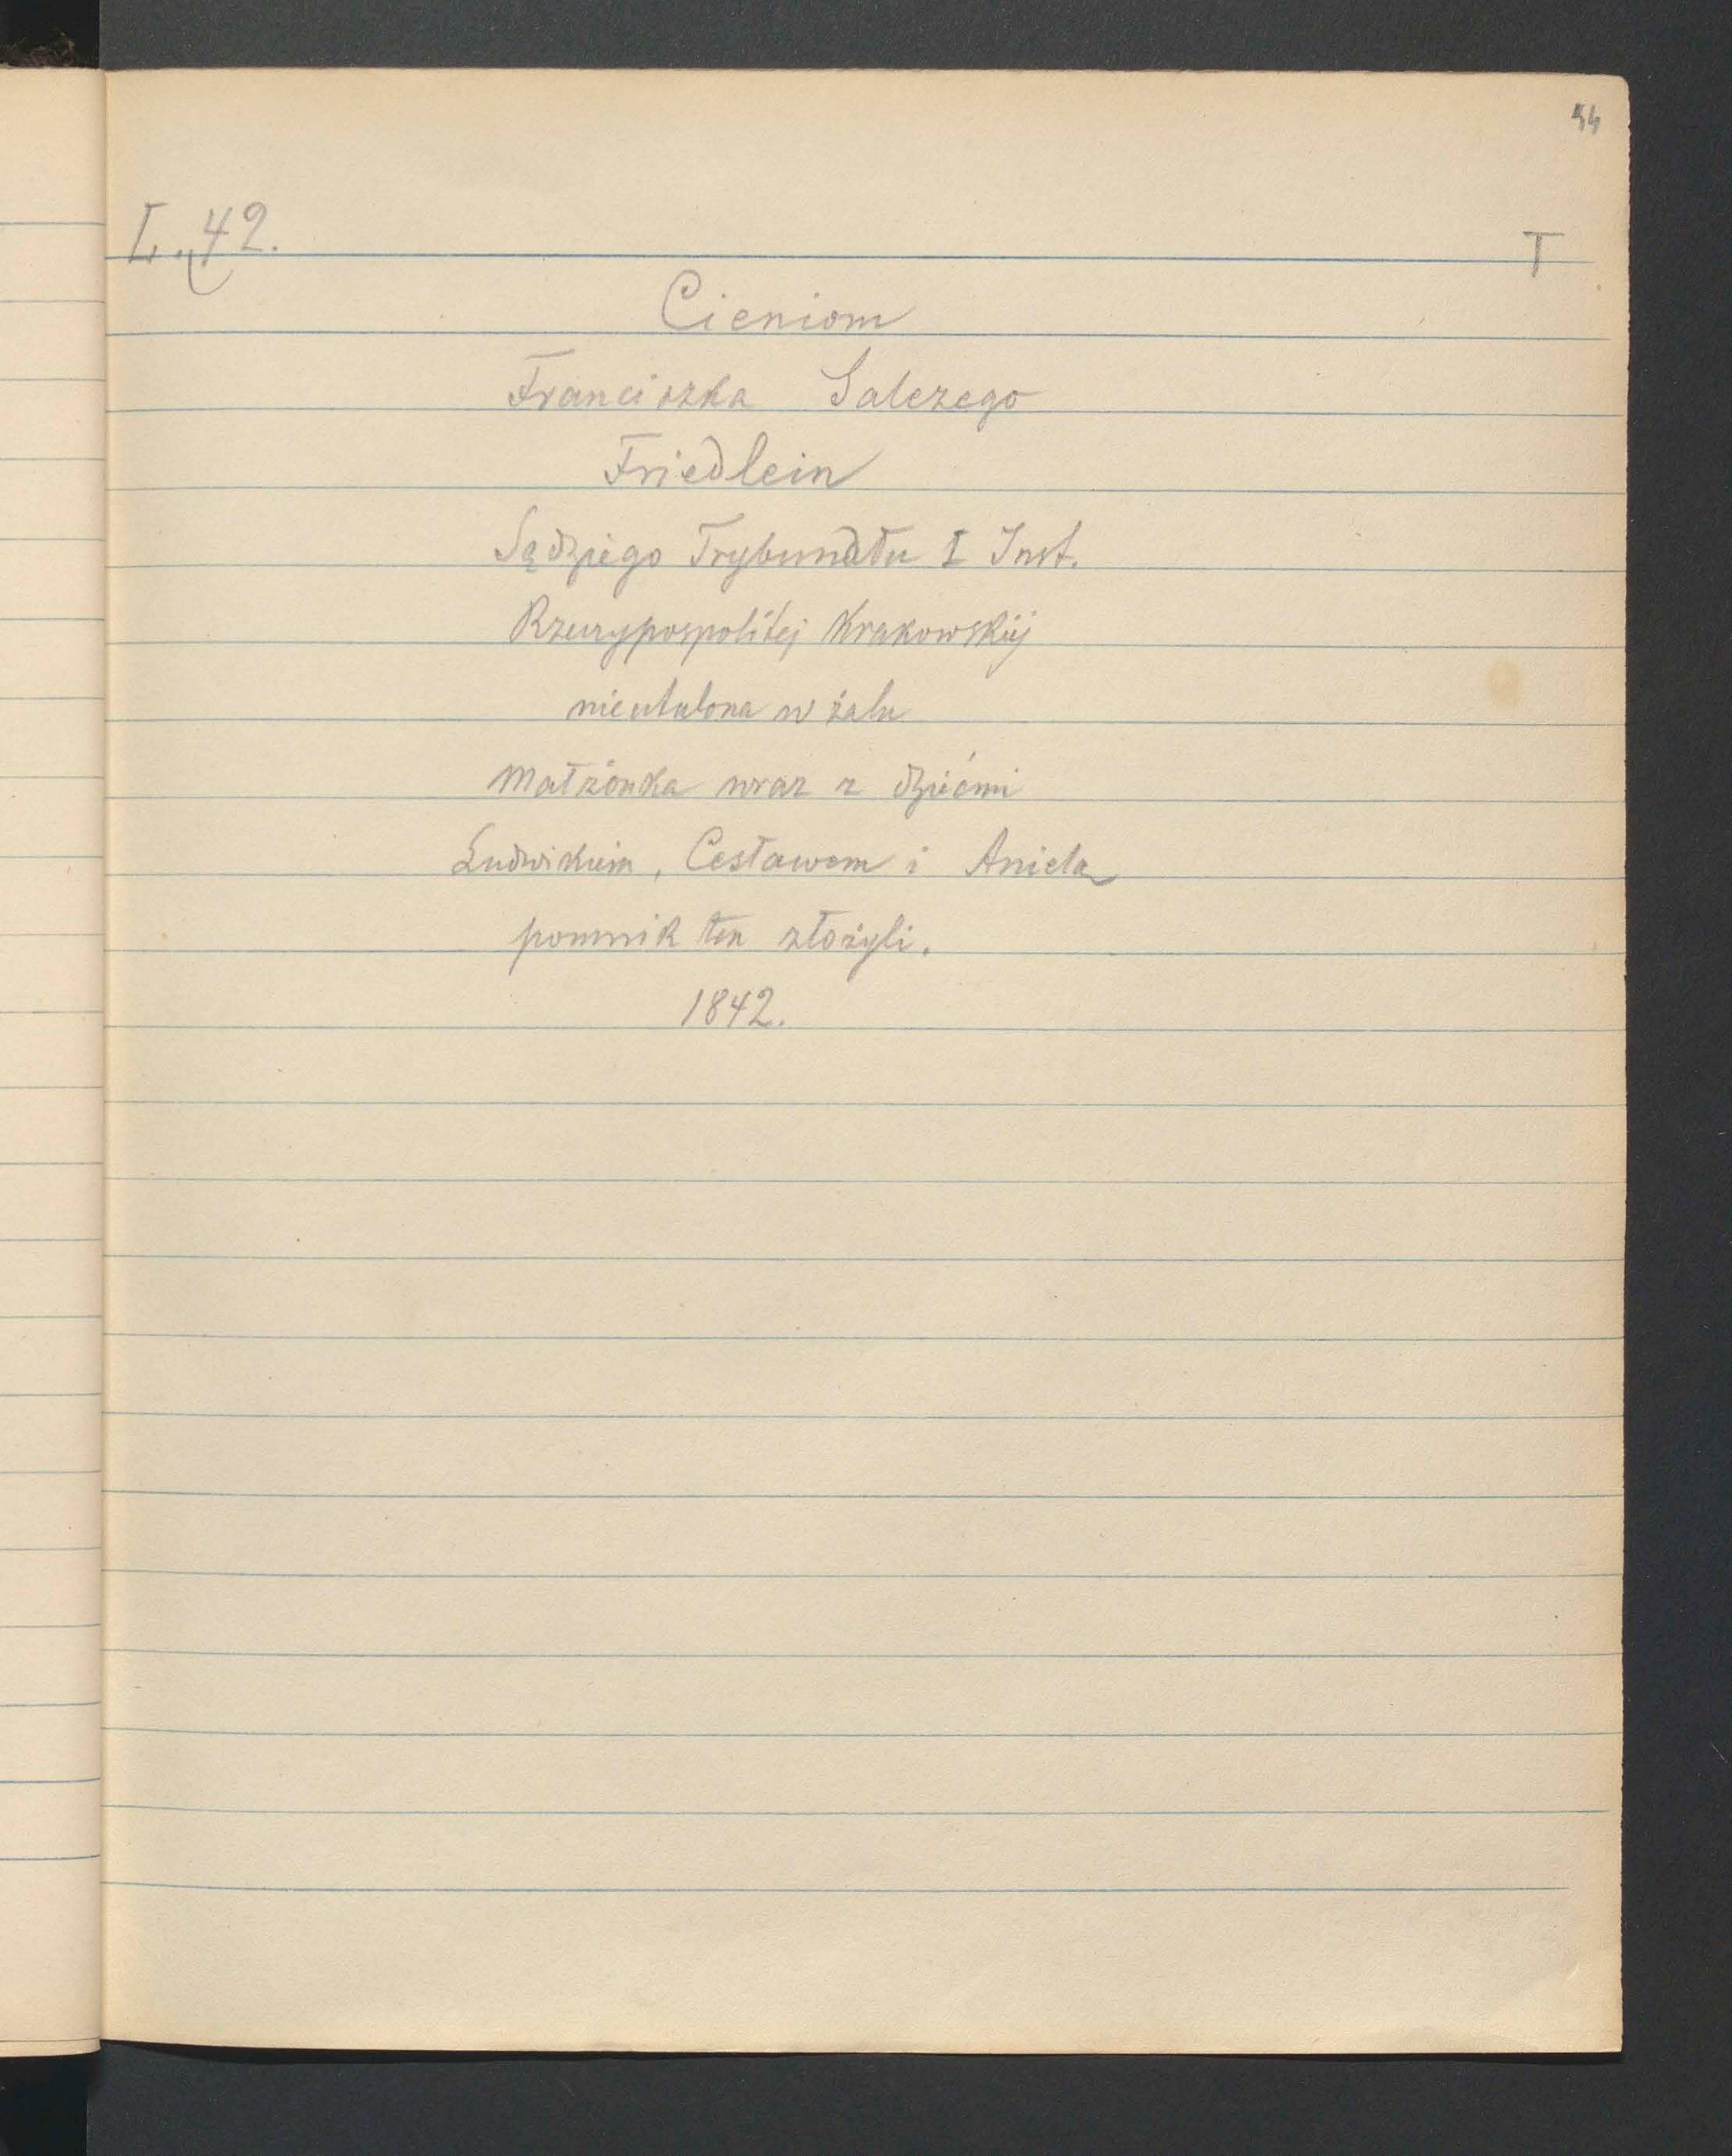 44
L. 42.
T
Cieniom
Franciszka Salezego
Friedlein
Sędziego Trybunału I Inst.
Rzeczypospolitej Krakowskiéj
nieutulona w żalu
Małżonka wraz z dziećmi
Ludwikiem, Cesławem i Anielą
pomnik ten złożyli.
1842.